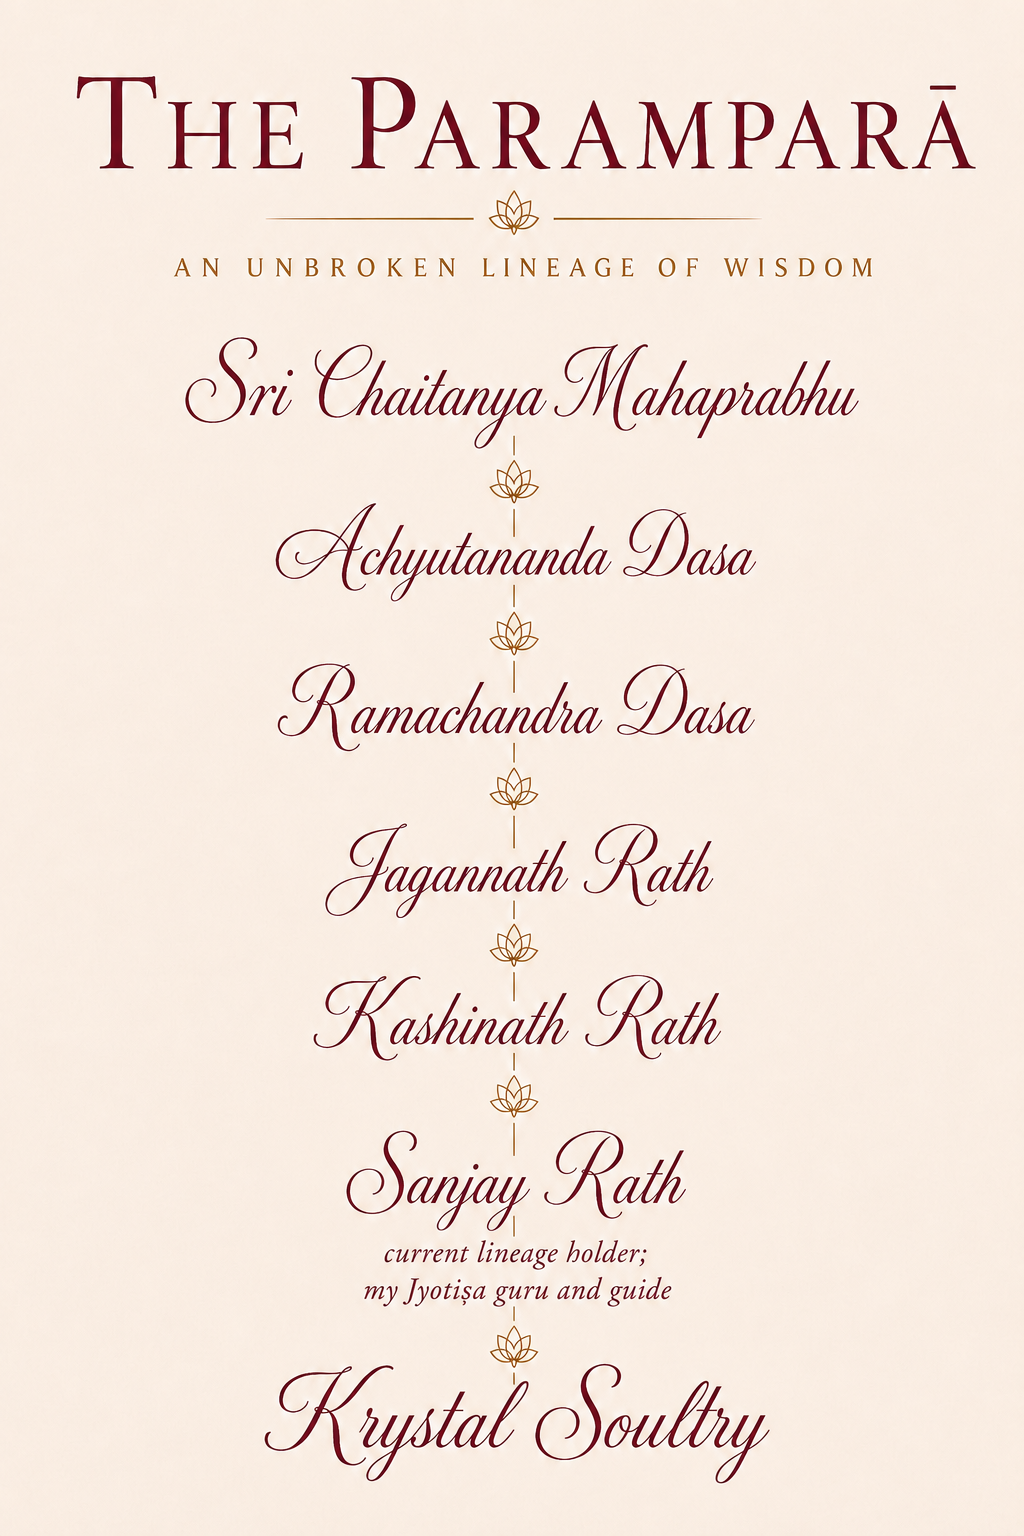 THE PARAMPARĀ
AN UNBROKEN LINEAGE OF WISDOM
Sri Chaitanya Mahaprabhu
Achyutananda Dasa
Ramachandra Dasa
Jagannath Rath
Kashinath Rath
Sanjay Rath
current lineage holder;
my Jyotiṣa guru and guide
Krystal Soultry